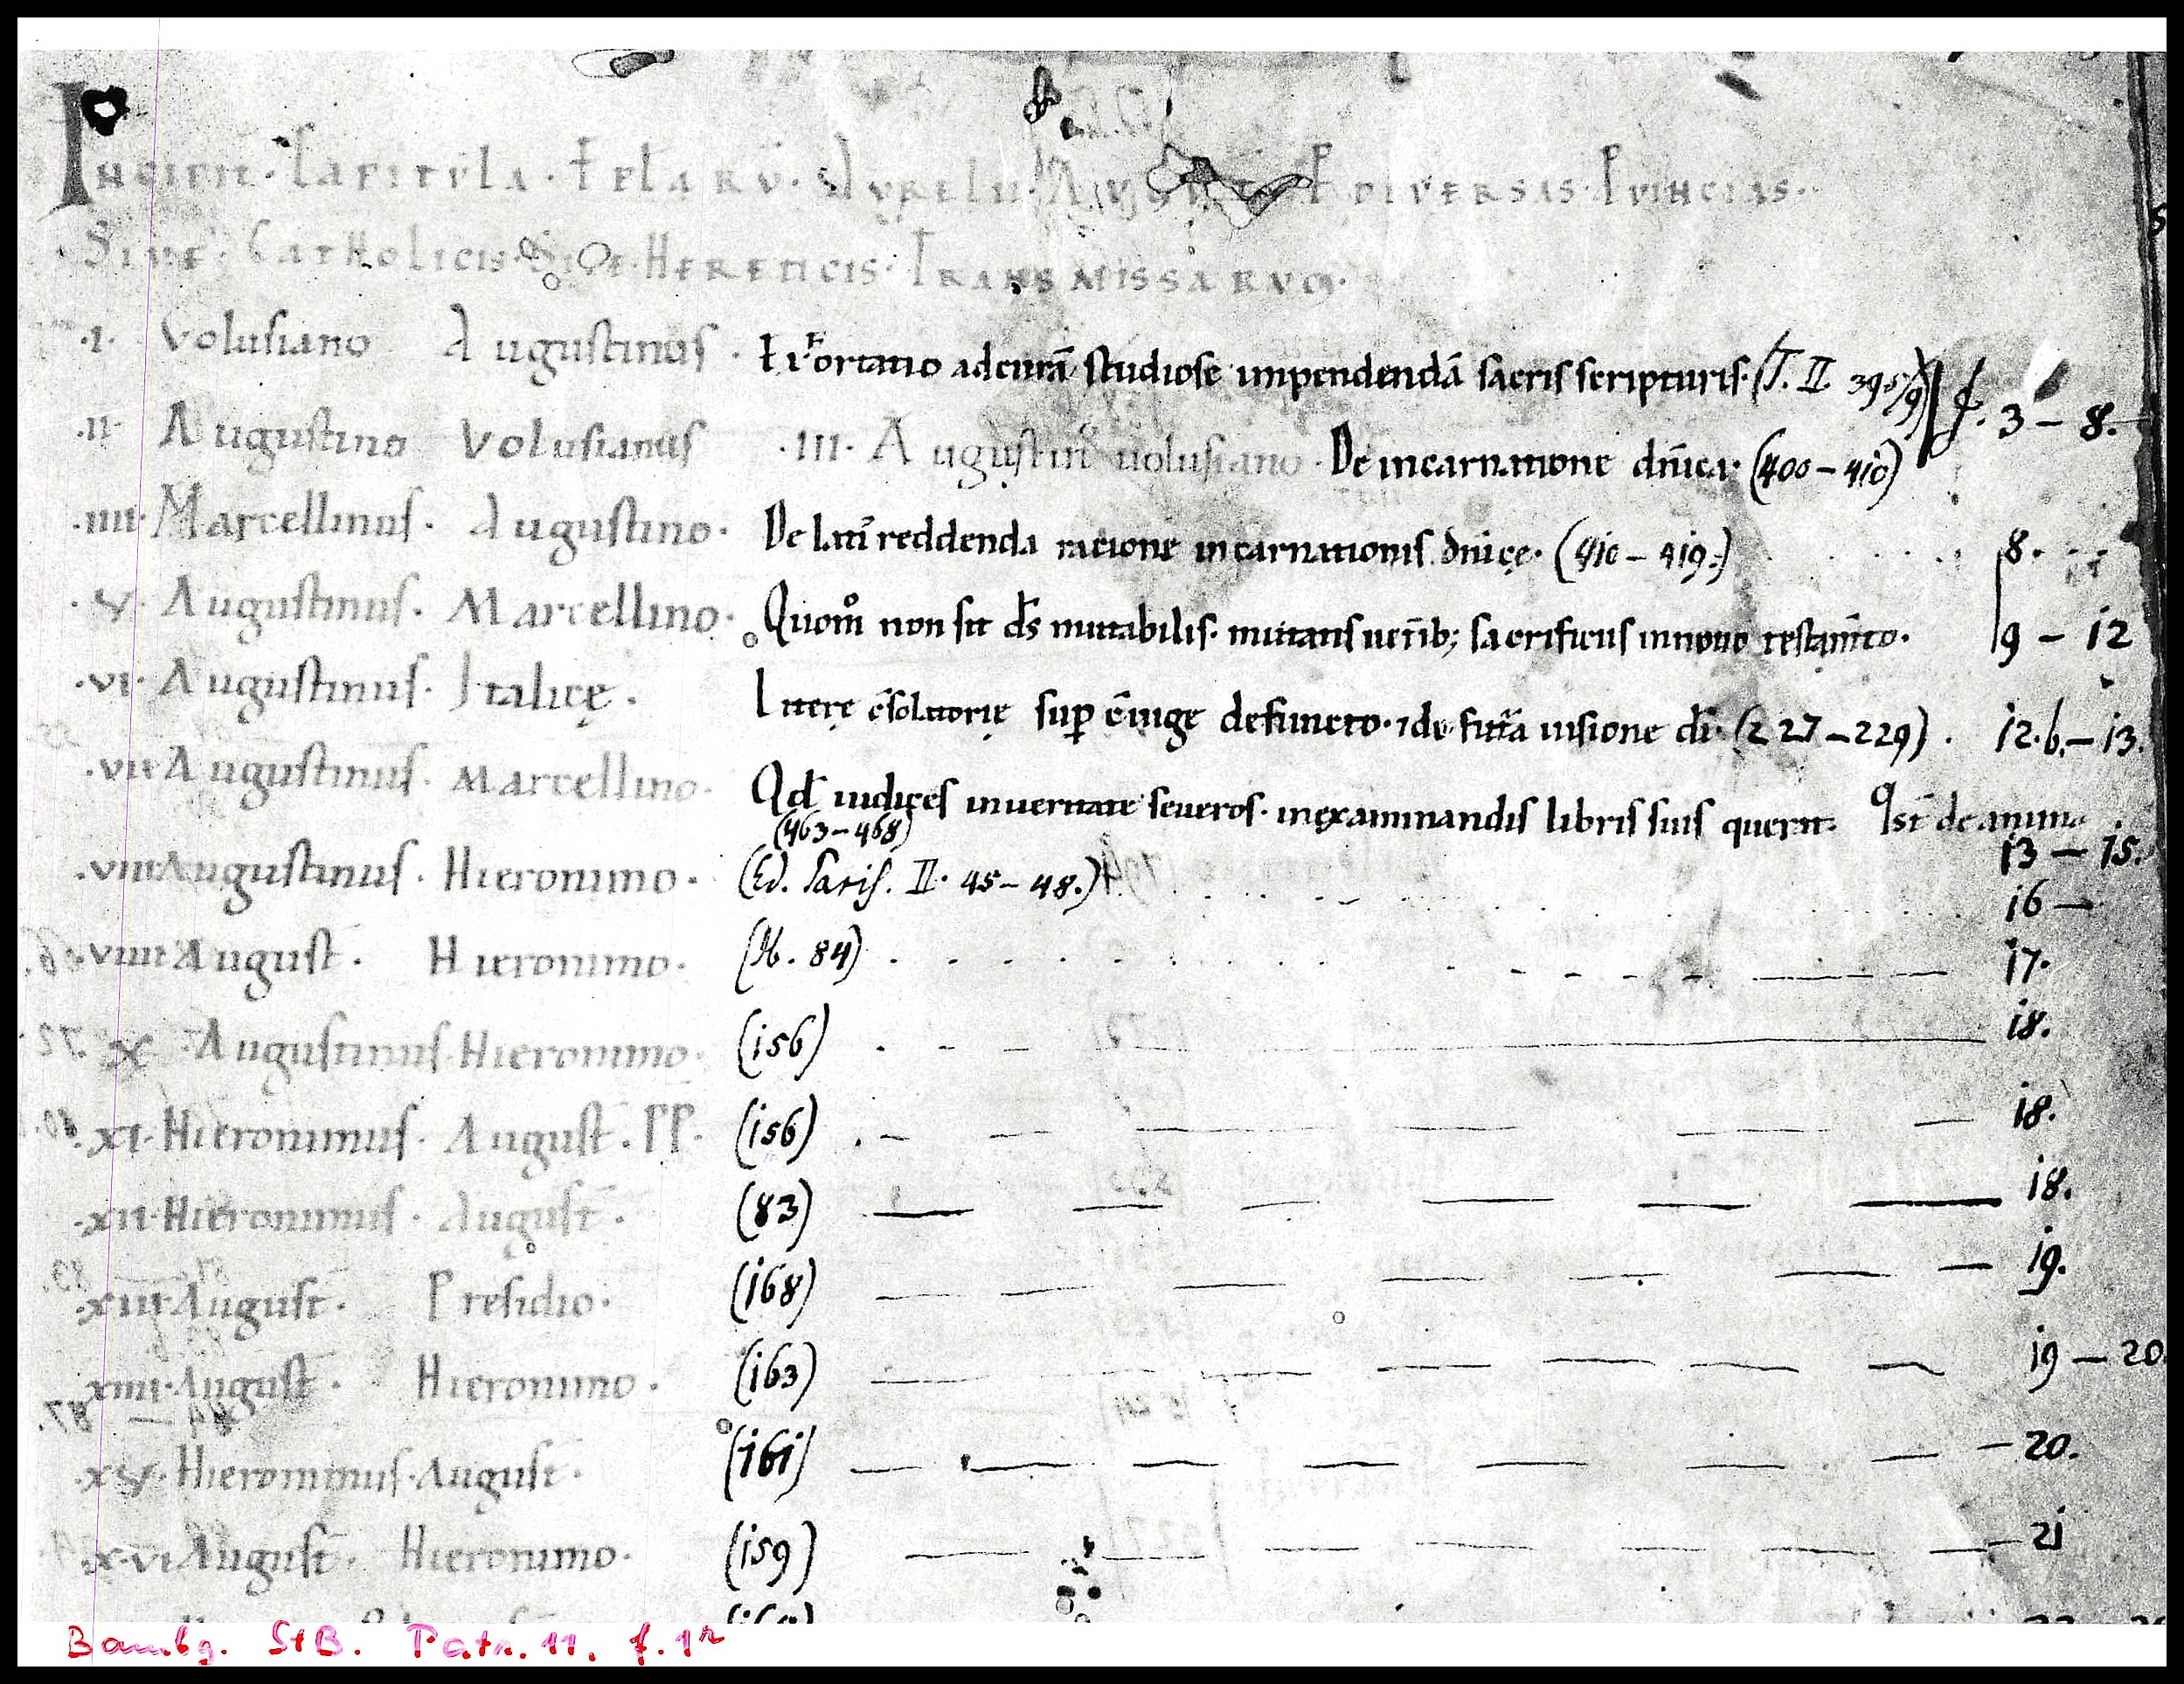 Incipiūt · Capitula · Ep̄laRū · Aurelii · Aug · Diversis · Puincias ·
Sive · Catholicis · Sive · Hereticis · Transmissarum ·
·I· Volusiano Augustinus · Ep̄ Ortatio ad eum studiose impendendā sacris scripturis · (T. II 395/9) f. 3 – 8.
·II· Augustino Volusianus ·III· Augustin̄ uolusiano · De incarnatione dn̄ica · (400 – 410)
·IIII· Marcellinus · Augustino · De reddenda racione incarnationis dn̄icę · (410 – 419.) 8.
·V· Augustinus · Marcellino · Quom̊ non sit dS mutabilis · mutans uetib; sacrificiis in nouo testam̄to · 9 – 12
·VI· Augustinus · Italicę · Litterę c̄solatorię sup c̄iuge defuncto · ⁊ de futura uisione di · (227 – 229) · 12.b. – 13.
·VII· Augustinus · Marcellino · Qd iudices seueros · in examinandis libris suis querit · de anima
(463 – 468) 13 – 15.
·VIII· Augustinus · Hieronimo · (Ed. Paris. II. 45 – 48.) 16 –
·VIIII· August̄ · Hieronimo · (ib. 84) 17.
X Augustinus · Hieronimo · (156) 18.
·XI· Hieronimus · August̄ · PP · (156) 18.
·XII· Hieronimus · August̄ · (83) 18.
·XIII· August̄ · Presidio · (168) 19.
XIIII · August̄ · Hieronimo · (163) 19 – 20
·XV· Hieronimus · August̄ · (161) 20.
·XVI August̄ · Hieronimo · (159) 21
Bambg. StB. Patr. 11, f. 1r